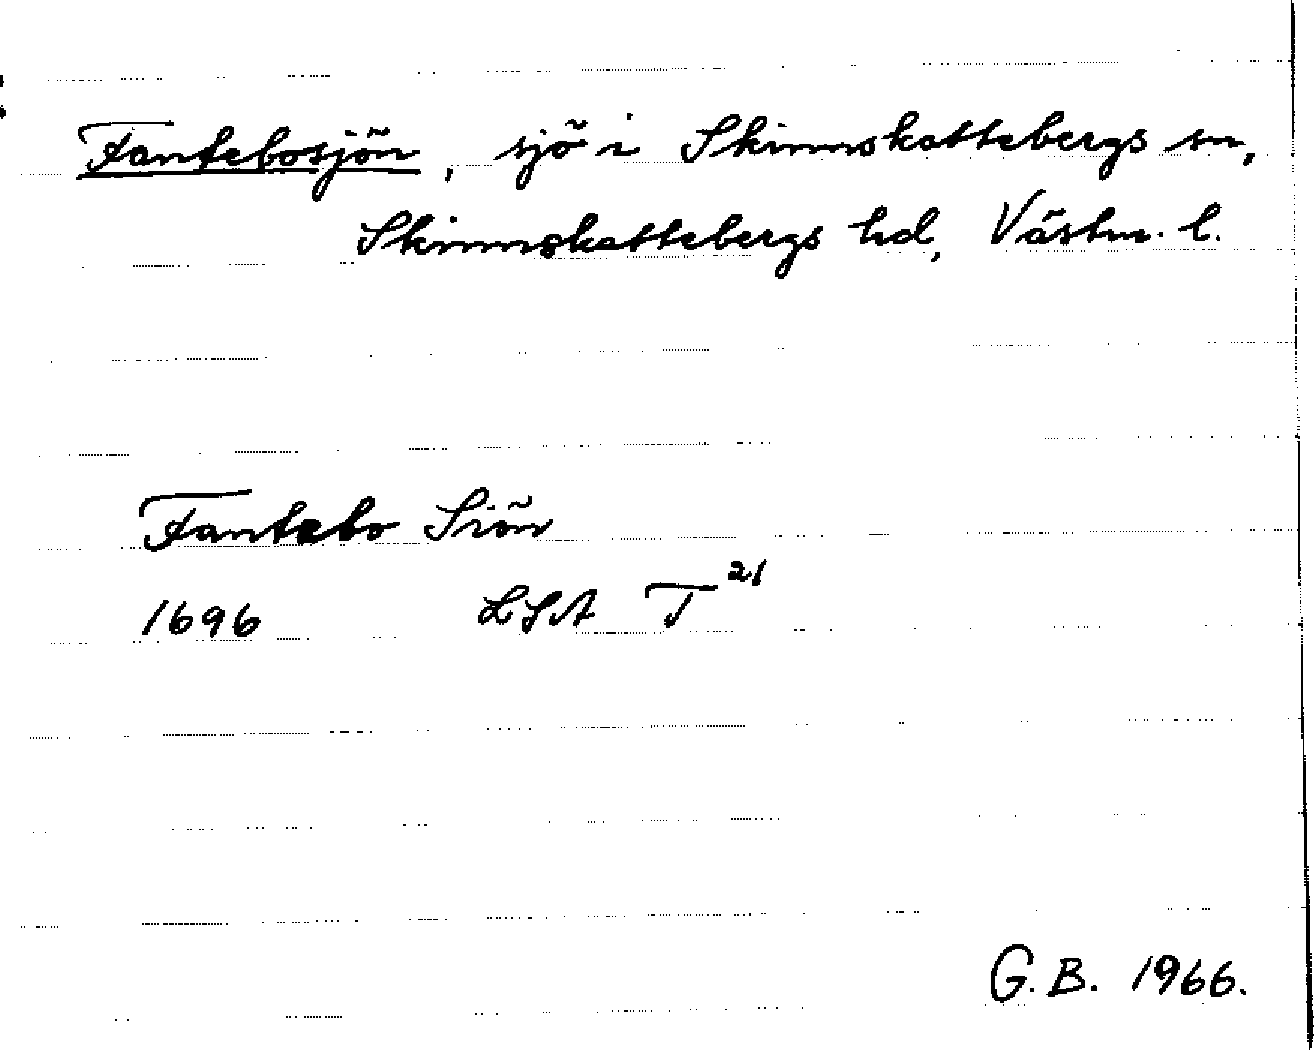 Fantebosjön, sjö i Skinnskattebergs sn,
Skinnskattebergs hd, Västm. l.
Fantebo Siön
1696 LSA T²¹
G.B. 1966.